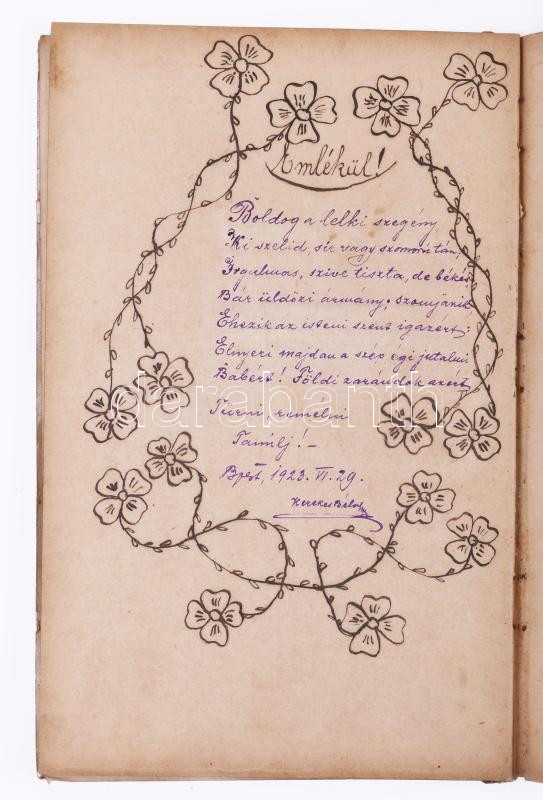 Emlékül!
Boldog a lelki szegény,
Ki szelid, sír vagy szomorú tán,
Irgalmas, szive tiszta, de békés
Bár üldözi ármány, szomjazik
Éhezik az isteni szent igazért:
Elnyeri majdan a szép égi jutalmi
Babért! Földi zarándok azért
Türni, remélni
Tanulj! –
Bpest, 1923. VI. 29.
Kerekes Béláné
darabanth